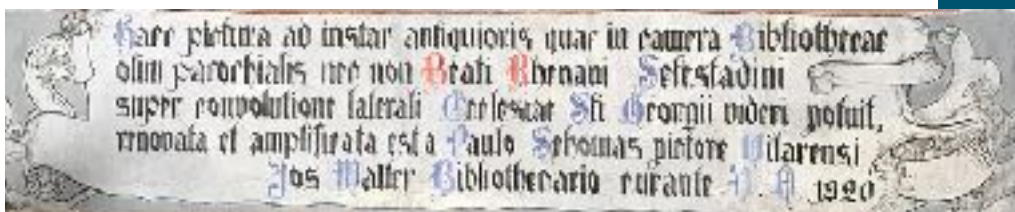 Haec pictura ad instar antiquioris quae in camera Bibliothecae
olim parochialis nec non Beati Rhenani Selestadini
super convolutione laterali Ecclesiae Sti Georgii videri potuit,
renovata et amplificata est a Paulo Schomas pictore Vilarensi
Jos Walter Bibliothecario curante 1920